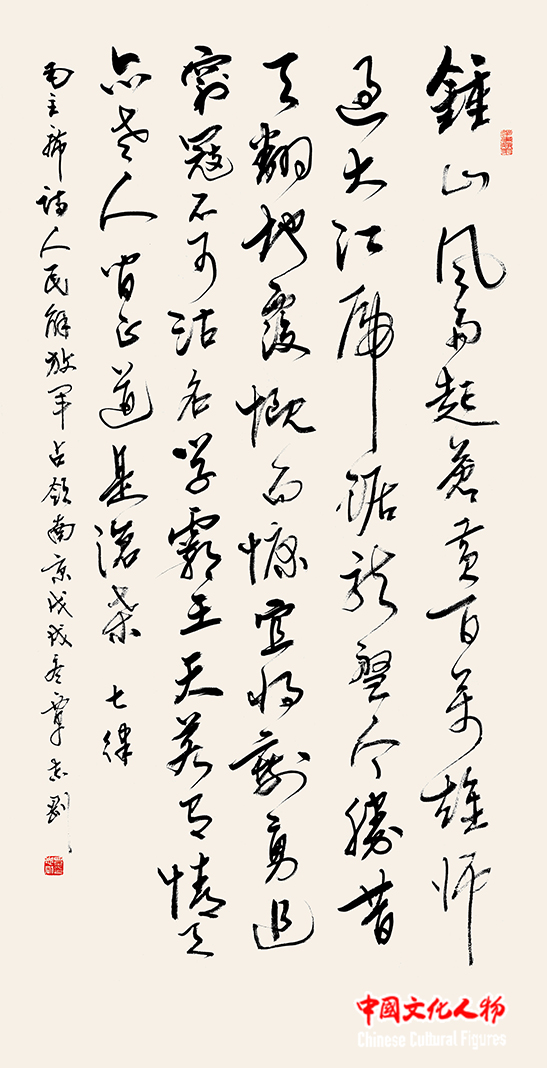 鍾山風雨起蒼黄百萬雄師
過大江虎踞龍盤今勝昔
天翻地覆慨而慷宜將剩勇追
窮寇不可沽名學霸王天若有情天
亦老人間正道是滄桑 七律
毛主席詩人民解放軍占領南京戊戌冬覃志剛
中國文化人物
Chinese Cultural Figures